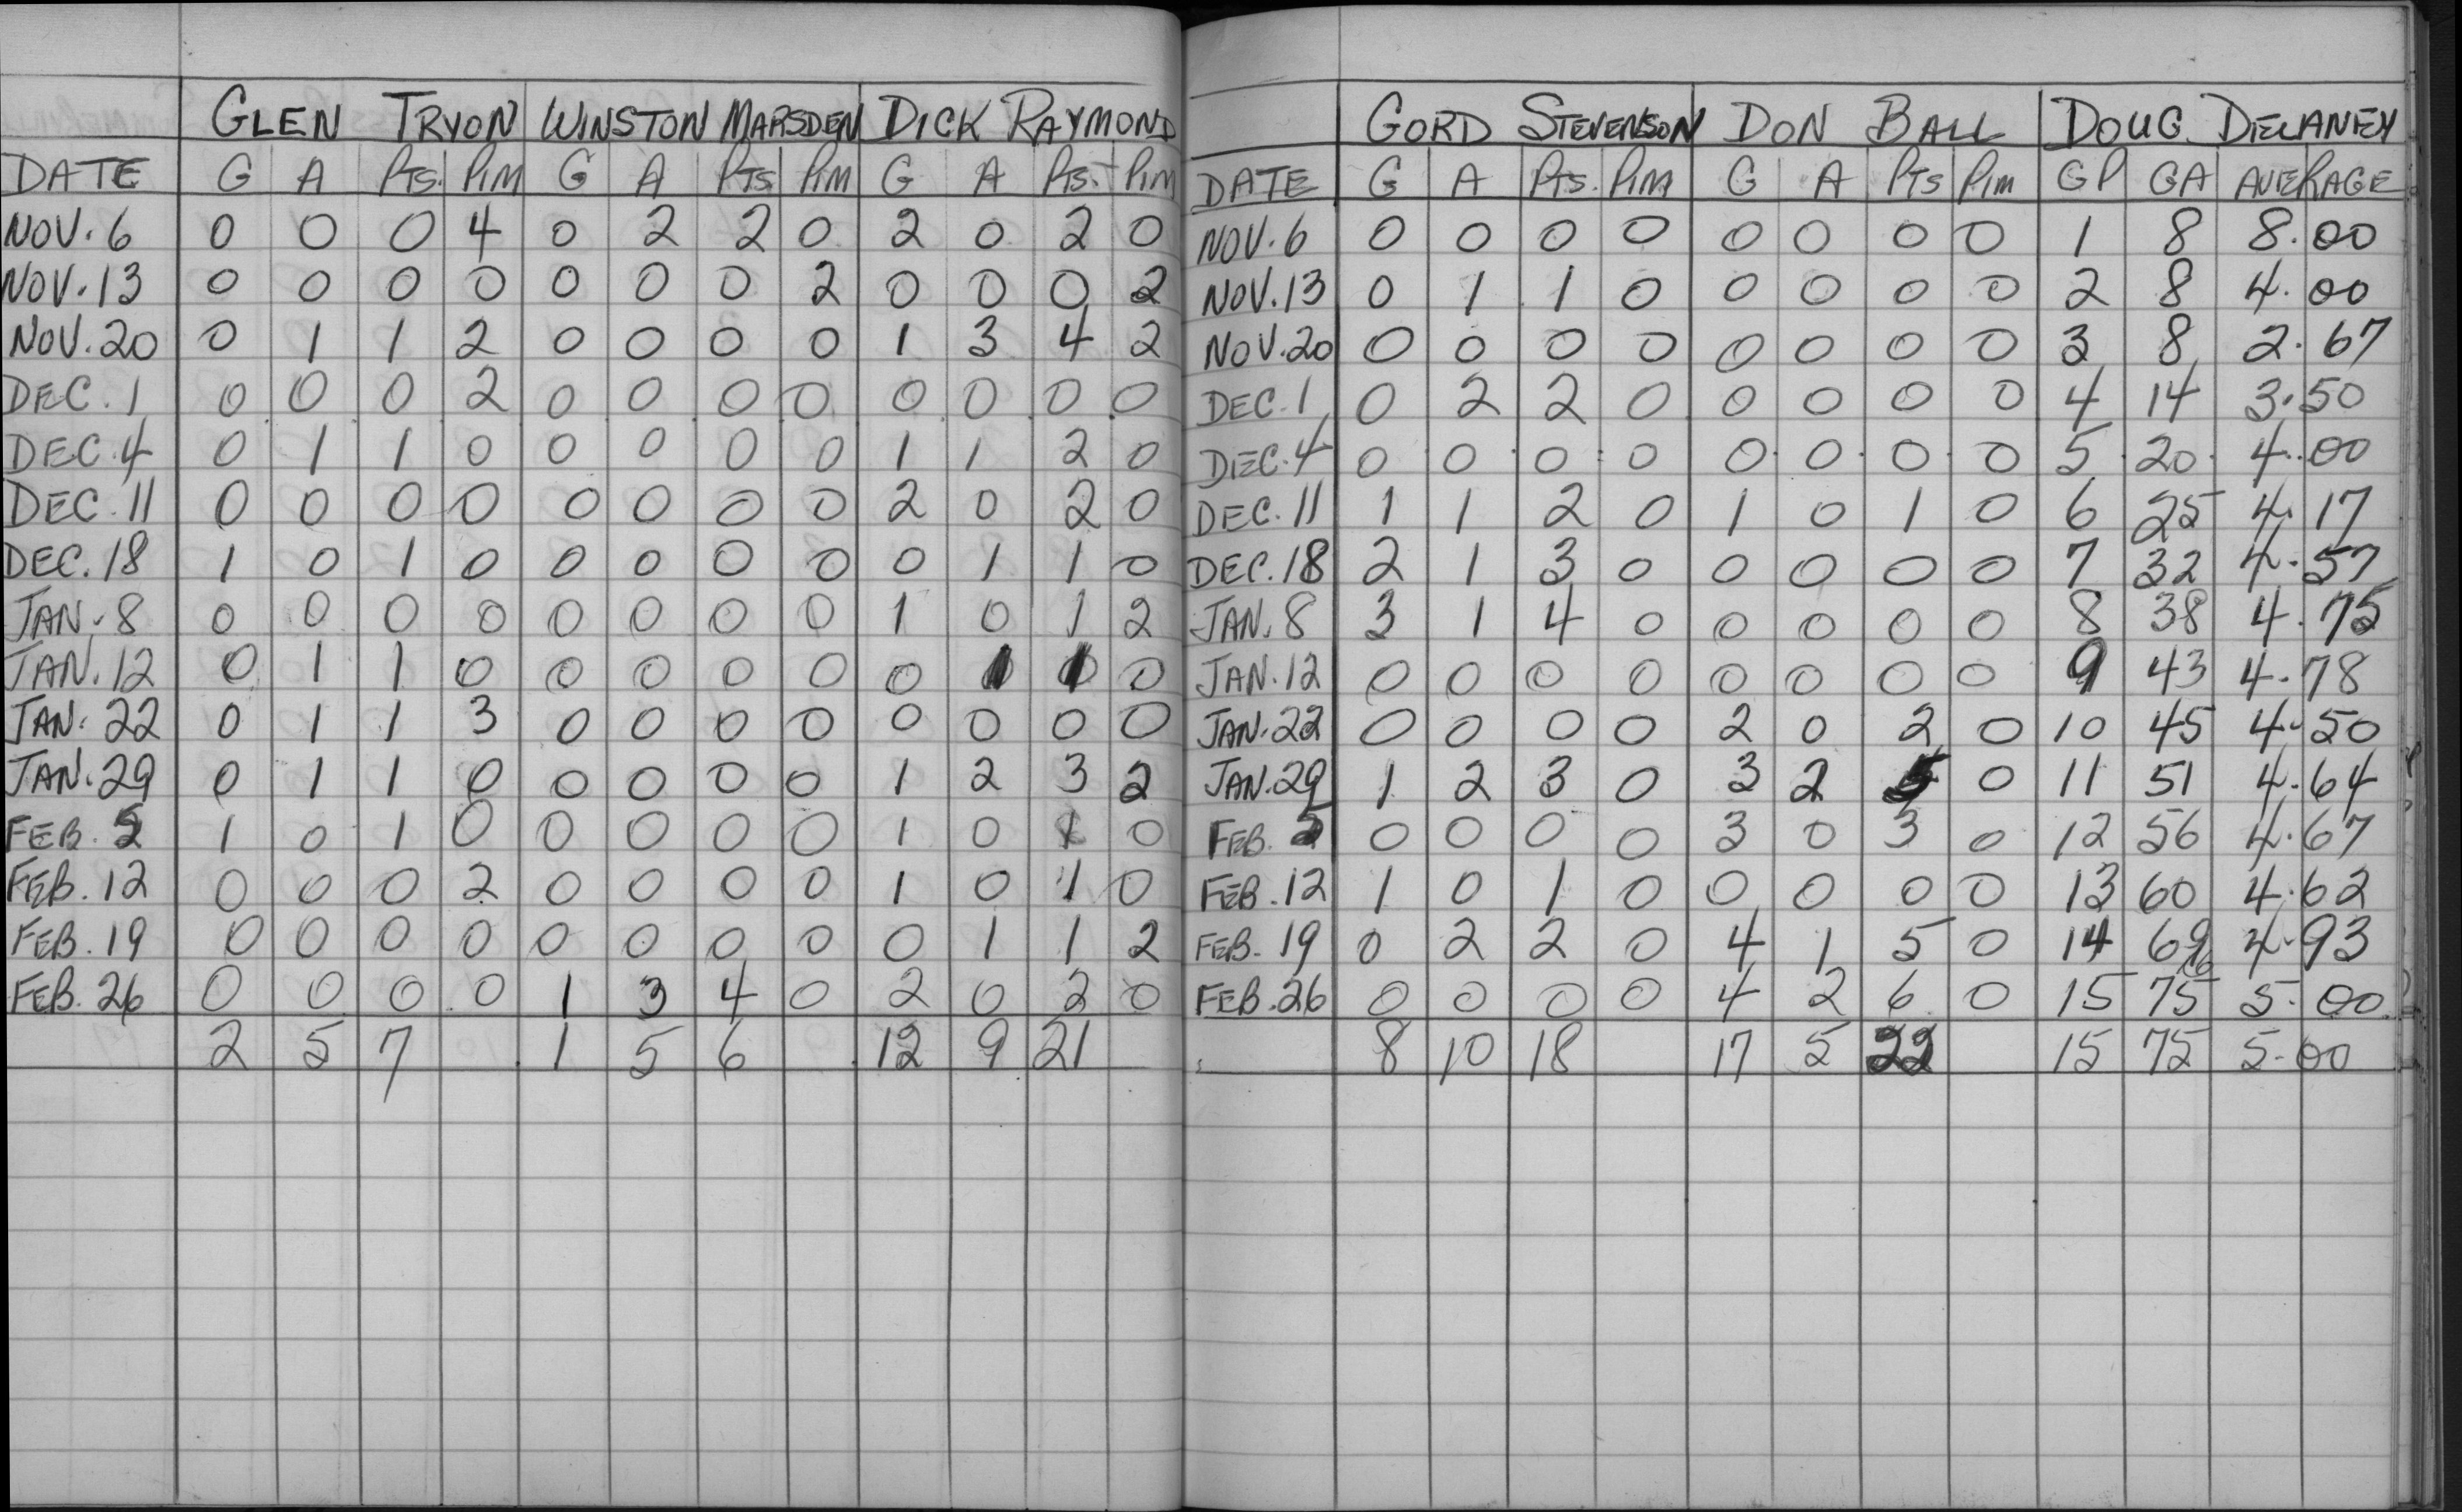 GLEN TRYON WINSTON MARSDEN DICK RAYMOND
DATE G A PTS. PIM G A PTS PIM G A PTS. PIM
NOV. 6 0 0 0 4 0 2 2 0 2 0 2 0
NOV. 13 0 0 0 0 0 0 0 2 0 0 0 2
NOV. 20 0 1 1 2 0 0 0 0 1 3 4 2
DEC. 1 0 0 0 2 0 0 0 0 0 0 0 0
DEC. 4 0 1 1 0 0 0 0 0 1 1 2 0
DEC. 11 0 0 0 0 0 0 0 0 2 0 2 0
DEC. 18 1 0 1 0 0 0 0 0 0 1 1 0
JAN. 8 0 0 0 0 0 0 0 0 1 0 1 2
JAN. 12 0 1 1 0 0 0 0 0 0 1 1 0
JAN. 22 0 1 1 3 0 0 0 0 0 0 0 0
JAN. 29 0 1 1 0 0 0 0 0 1 2 3 2
FEB. 5 1 0 1 0 0 0 0 0 1 0 1 0
FEB. 12 0 0 0 2 0 0 0 0 1 0 1 0
FEB. 19 0 0 0 0 0 0 0 0 0 1 1 2
FEB. 26 0 0 0 0 1 3 4 0 2 0 2 0
2 5 7 1 5 6 12 9 21
GORD STEVENSON DON BALL DOUG DELANEY
DATE G A PTS. PIM G A PTS PIM GP GA AVERAGE
NOV. 6 0 0 0 0 0 0 0 0 1 8 8.00
NOV. 13 0 1 1 0 0 0 0 0 2 8 4.00
NOV. 20 0 0 0 0 0 0 0 0 3 8 2.67
DEC. 1 0 2 2 0 0 0 0 0 4 14 3.50
DEC. 4 0 0 0 0 0 0 0 0 5 20 4.00
DEC. 11 1 1 2 0 1 0 1 0 6 25 4.17
DEC. 18 2 1 3 0 0 0 0 0 7 32 4.57
JAN. 8 3 1 4 0 0 0 0 0 8 38 4.75
JAN. 12 0 0 0 0 0 0 0 0 9 43 4.78
JAN. 22 0 0 0 0 2 0 2 0 10 45 4.50
JAN. 29 1 2 3 0 3 2 5 0 11 51 4.64
FEB. 5 0 0 0 0 3 0 3 0 12 56 4.67
FEB. 12 1 0 1 0 0 0 0 0 13 60 4.62
FEB. 19 0 2 2 0 4 1 5 0 14 69 4.93
FEB. 26 0 0 0 0 4 2 6 0 15 75 5.00
8 10 18 17 5 22 15 75 5.00